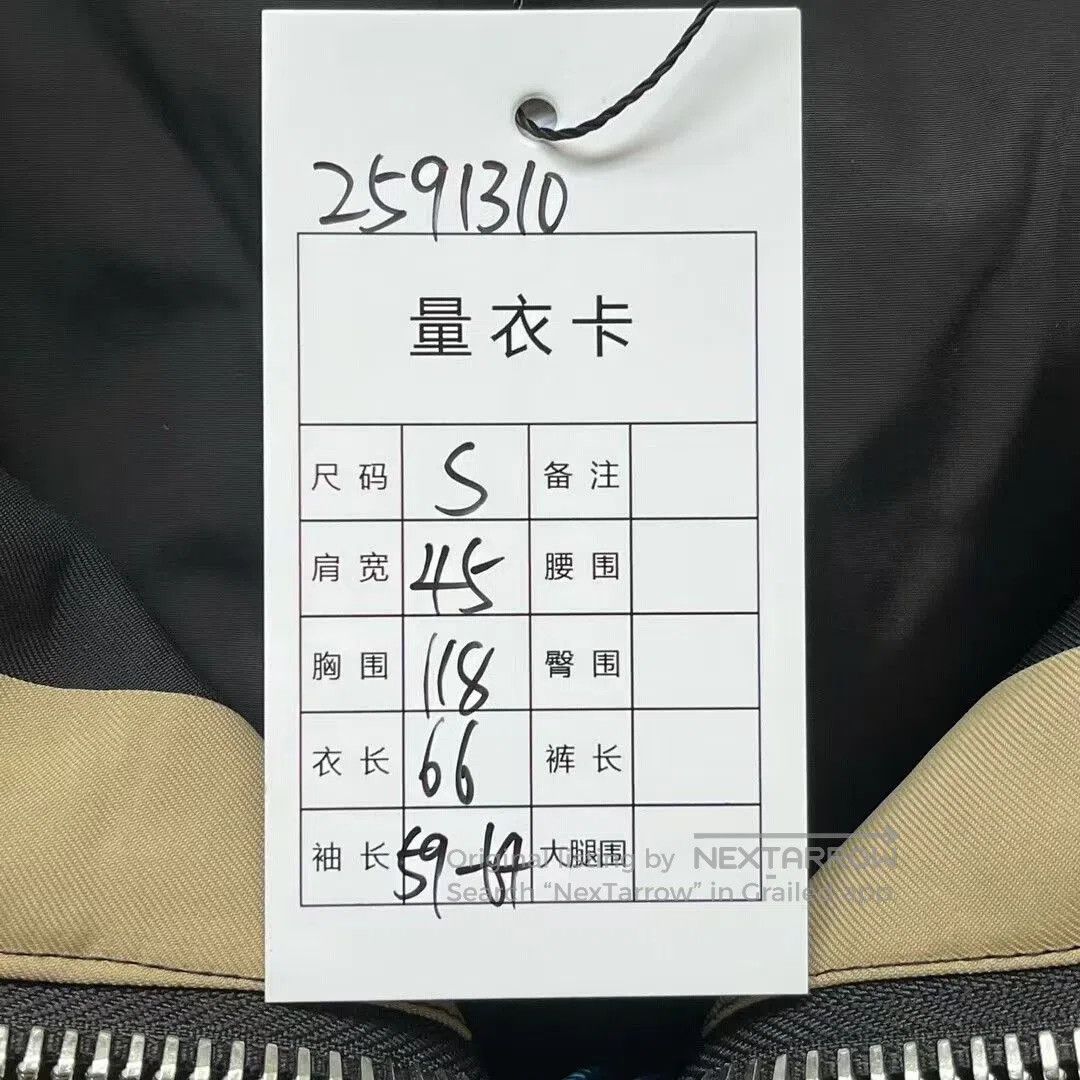 2591310
量衣卡
尺码 S 备注
肩宽 45 腰围
胸围 118 臀围
衣长 66 裤长
袖长 59- 大腿围
Original listing by NEXTARROW
Search “NexTarrow” in Grailed app